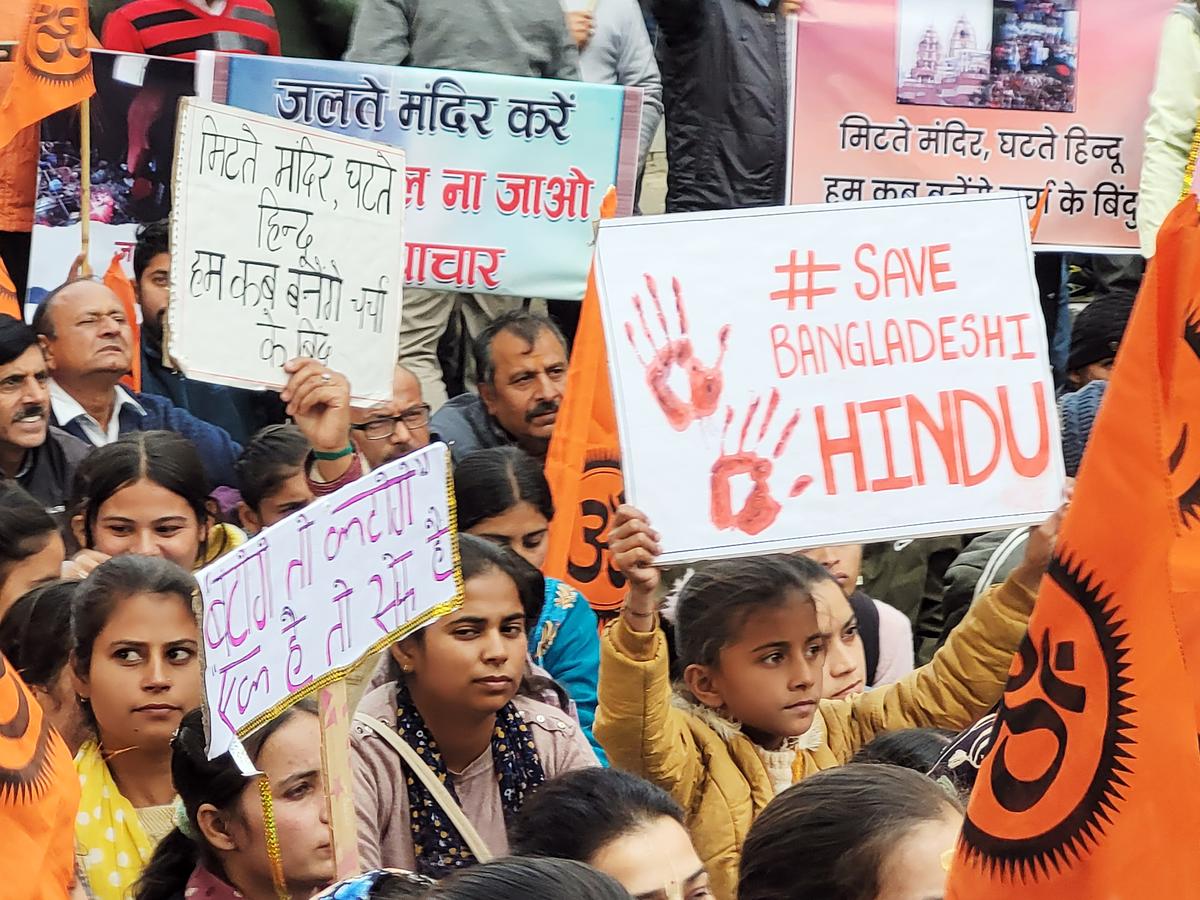 जलते मंदिर करें
ना जाओ
मिटते मंदिर, घटते हिन्दू
हम कब के बिंदु
मिटते मंदिर, घटते
हिन्दू
हम कब बनेंगे चर्चा
के बिंदु
# SAVE
BANGLADESHI
HINDU
बटोगे तो कटोगे"
"एक है तो सेफ है
ॐ
ॐ
ॐ